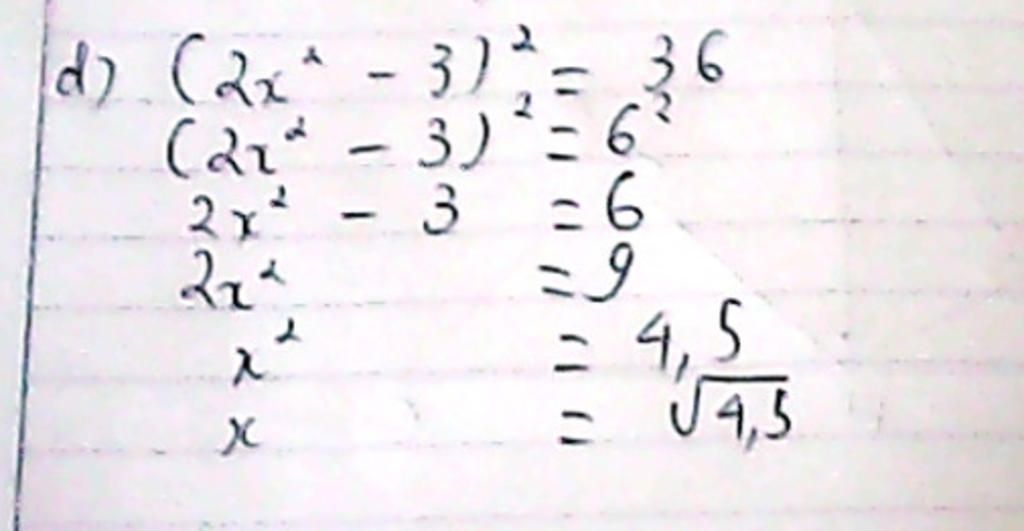 d) (2x² - 3)² = 36
(2x² - 3)² = 6²
2x² - 3 = 6
2x² = 9
x² = 4,5
x = √4,5